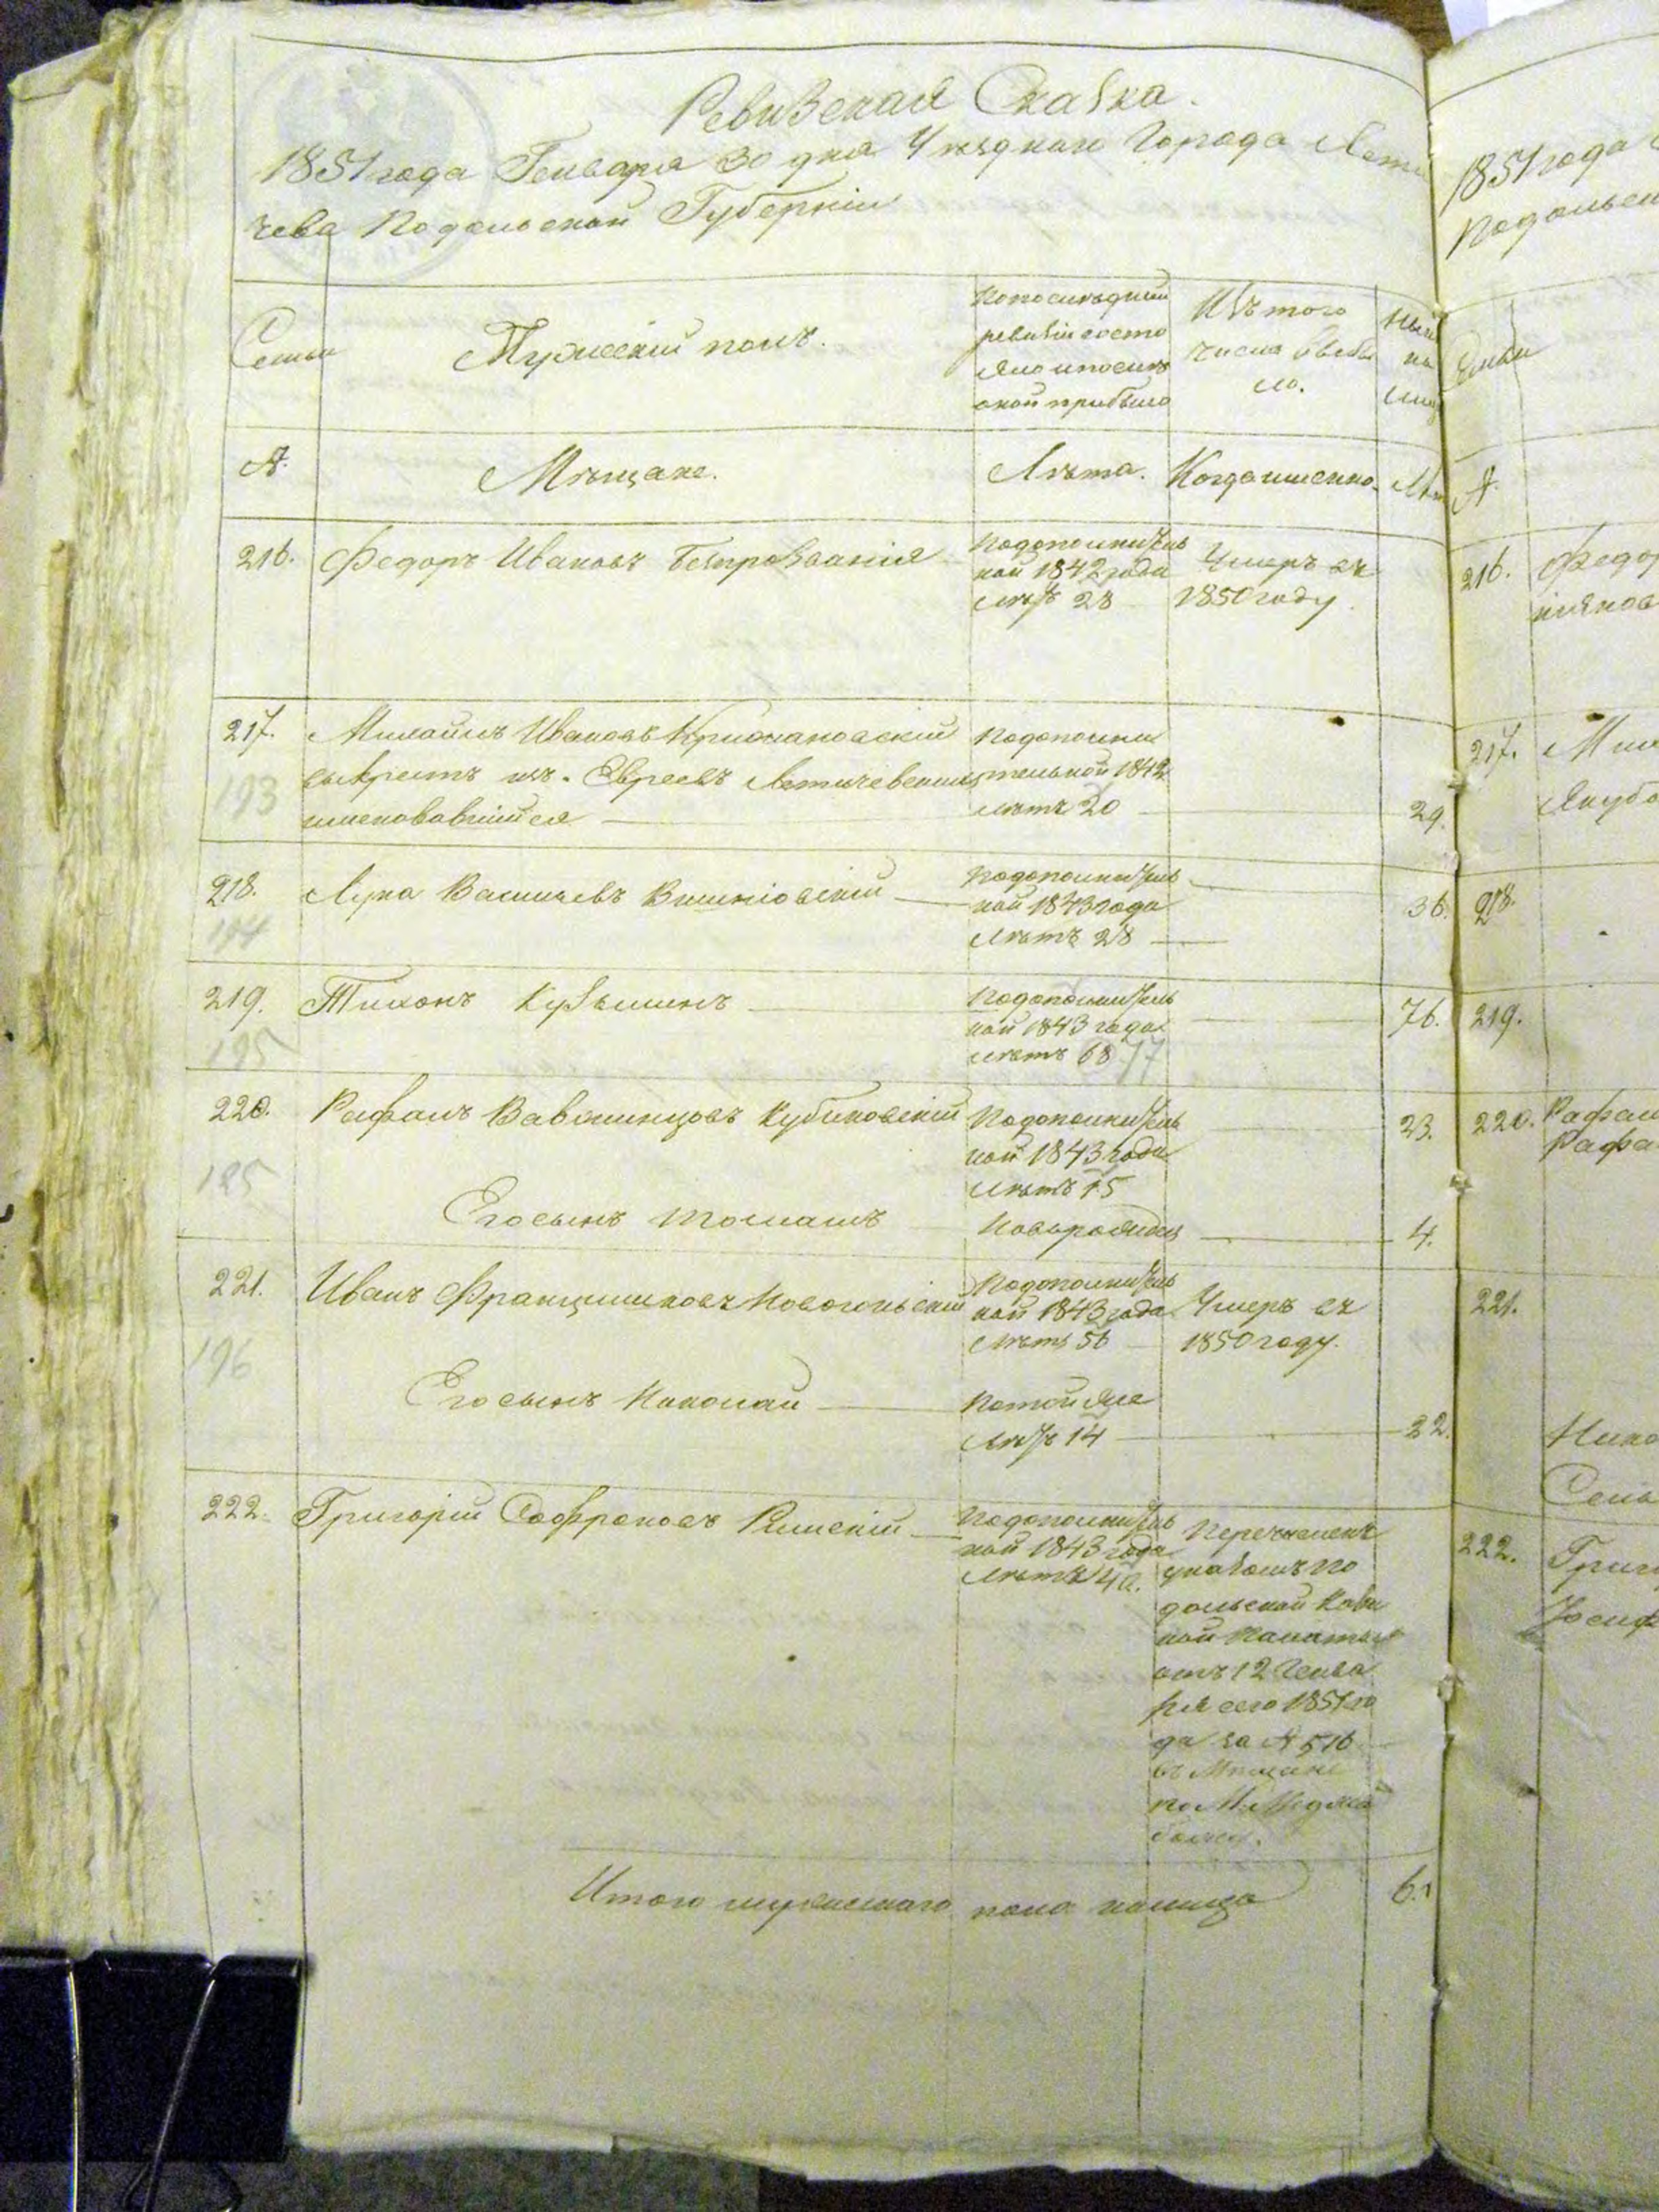 Ревизская Сказка.
1851 года Генваря 30 дня Уѣзднаго Города Лети
чева Подольской Губерніи
Семьи
Мужескій полъ.
По последней
ревизіи состо
яло и послѣ
оной прибыло
Изъ того
числа выбы
ло.
Ныне
на
лицо
№.
Мѣщане.
Лѣта.
Когда именно.
216.
Федоръ Ивановъ Безпрозванія
По дополнитель
ной 1842 года
лѣтъ 28
Умеръ въ
1850 году.
217.
193
Михайлъ Ивановъ Крижановскій
выкрестъ изъ Евреевъ Летичевскимъ
именовавшійся
По дополни
тельной 1842
лѣтъ 20
29.
218.
194
Лука Васильевъ Вишнёвскій
По дополнитель
ной 1843 года
Лѣтъ 28
36.
219.
195
Тихонъ Кузьминъ
По дополнитель
ной 1843 года
лѣтъ 68
76.
220.
195
Рафалъ Вавжинцовъ Кубиковскій
По дополнитель
ной 1843 года
лѣтъ 15
23.
Его сынъ Томашъ
Новорожден
4.
221.
196
Иванъ Францишковъ Новосельскій
По дополнитель
ной 1843 года
лѣтъ 56
Умеръ въ
1850 году.
Его сынъ Николай
По той же
лѣтъ 14
22.
222.
Григорій Софроновъ Римскій
По дополнитель
ной 1843 года
Лѣтъ 40.
Перечисленъ
указомъ По
дольской Казен
ной Палаты
отъ 12 Генва
ря сего 1851 го
да за № 516
въ Мѣщане
по М. Меджи
божу.
Итого мужескаго пола налицо
6.
1851 года
Подольск
Семьи
№.
216.
Федор
217.
218.
219.
220.
Рафал
Рафа
221.
Нико
222.
Григ